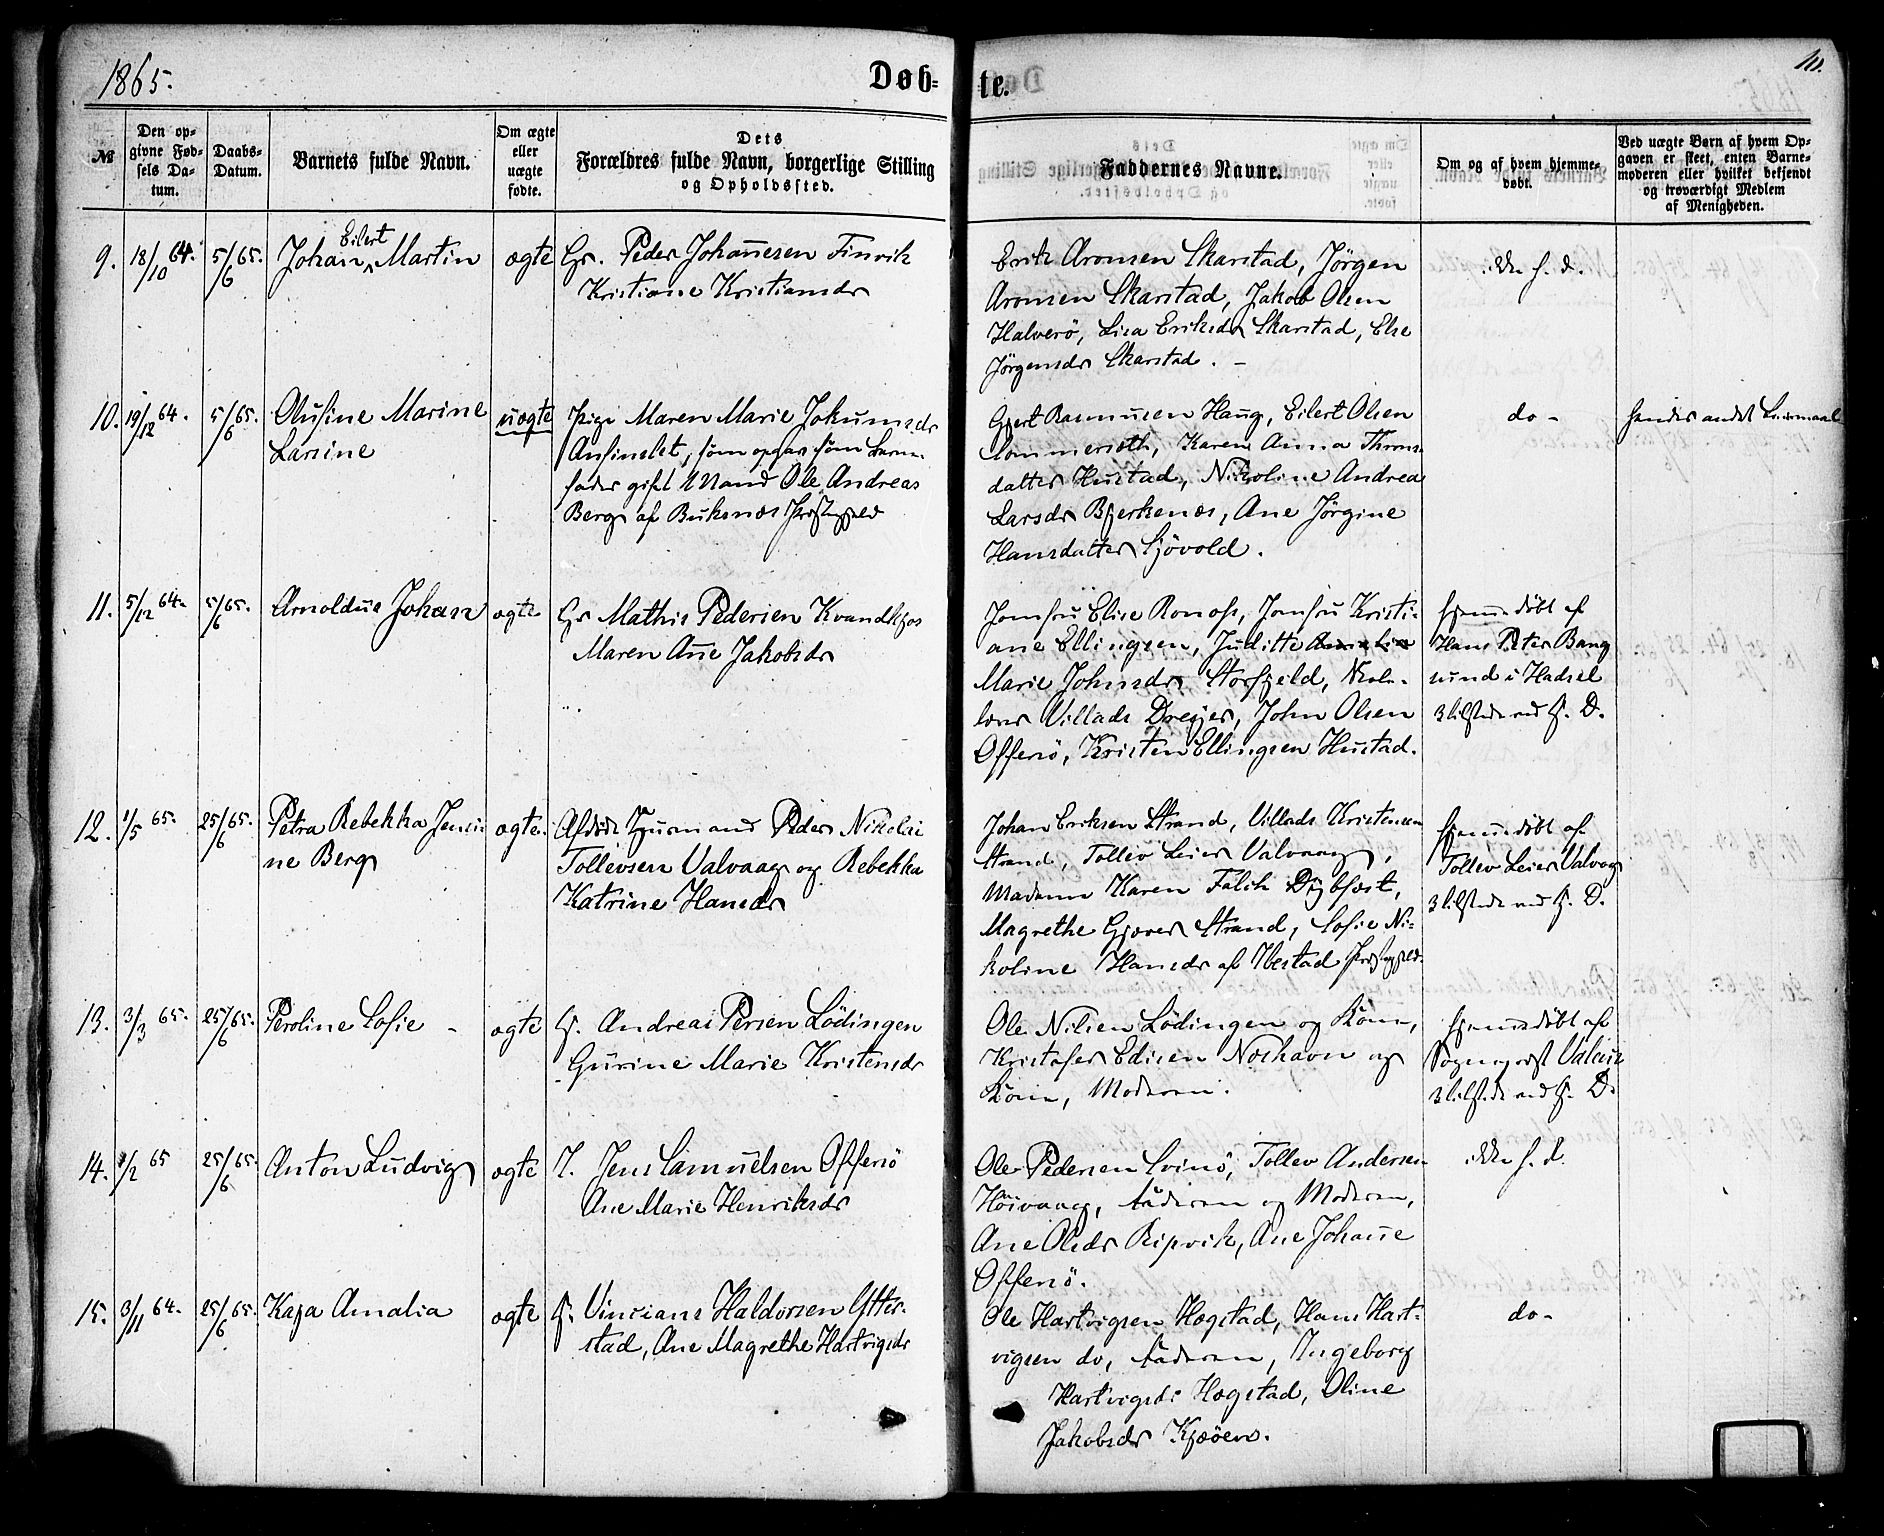 1865.
Døb-
te.
10.
№
Den op-
givne Fød-
sels Da-
tum.
Daabs-
Datum.
Barnets fulde Navn.
Om ægte
eller
uægte
fødte.
Dets
Forældres fulde Navn, borgerlige Stilling
og Opholdssted.
Faddernes Navne.
Om og af hvem hjemme-
døbt.
Ved uægte Børn af hvem Op-
gaven er skeet, enten Barne-
moderen eller hvilket bekjendt
og troværdigt Medlem
af Menigheden.
9. 18/10 64. 5/6 65.
Eilert
Johan Martin
ægte
Gr. Peder Johanesen Finvik
Kristiane Kristiansdr
Erik Aronsen Skarstad, Jörgen
Aronsen Skarstad, Jakob Olsen
Halverö, Lisa Eriksdr Skarstad, Else
Jörgensdr Skarstad. -
ikke h. d.
10. 19/12 64. 5/6 65.
Olufine Marine
Larsine
uægte
Pige Maren Marie Jokumsdr
som opgav som Barne-
fader gift Mand Ole Andreas
Berg af Buksnæs Præstegjeld
Gjert Rasmusen Haug, Eilert Olsen
Sommersæth, Karen Anna Thoms-
datter Hustad, Nikoline Andrea
Larsdr Bjerkenæs, Ane Jörgine
Hansdatter Sjövold.
do -
hendes andet Leiermaal
11. 5/12 64. 5/6 65.
Arnoldus Johan
ægte
Gr Mathis Pedersen Kvandkjos
Maren Ane Jakobsdr
Jomfru Elise Ronoss, Jomfru Kristi-
ane Ellingsen, Juditte
Marie Johnsdr Storfjeld, Skole-
lærer Villads Dreyer, John Olsen
Offersö, Kristen Ellingsen Hustad.
hjemedöbt af
Hans Peter Bang
sund i Hadsel
3 tilstede ved h. D.
12. 1/5 65. 25/6 65.
Petra Rebekka Jensi-
ne Berg
ægte.
Afdöde Huusmand Peder Nikolai
Tollevsen Valvaag og Rebekka
Katrine Hansdr
Johan Eriksen Strand, Villads Kristensen
Strand, Tollev Leier Valvaag,
Madame Karen Falck Dybfest,
Magrethe Gjæver Strand, Sofie Ni-
koline Hansdr af Ibestad Præstegjeld.
hjemedöbt af
Tollev Leier Valvag
3 tilstede ved h. D.
13. 3/3 65. 25/6 65.
Peroline Sofie -
ægte
G. Andreas Persen Lödingen
Gurine Marie Kristensdr
Ole Nilsen Lödingen og Kone,
Kristofer Edisen Næshavn og
Kone, Moderen.
hjemedöbt af
Sognepræst Valeur
3 tilstede ved h. D.
14. 1/2 65 25/6 65.
Anton Ludvig
ægte
I. Jens Samuelsen Offersö
Ane Marie Henriksdr
Ole Pedersen Svinö, Tollev Andersen
Höivaag, Faderen og Moderen,
Ane Olsdr Ripvik, Ane Johane
Offersö.
ikke h. d.
15. 3/11 64. 25/6 65.
Kaja Amalia
ægte
G. Vinsians Haldorsen Ytter-
stad, Ane Magrethe Hartvigsdr
Ole Hartvigsen Hægstad, Hans Hart-
vigsen do, Faderen, Ingeborg
Hartvigsdr Hægstad, Oline
Jakobsdr Kjöen.
do -